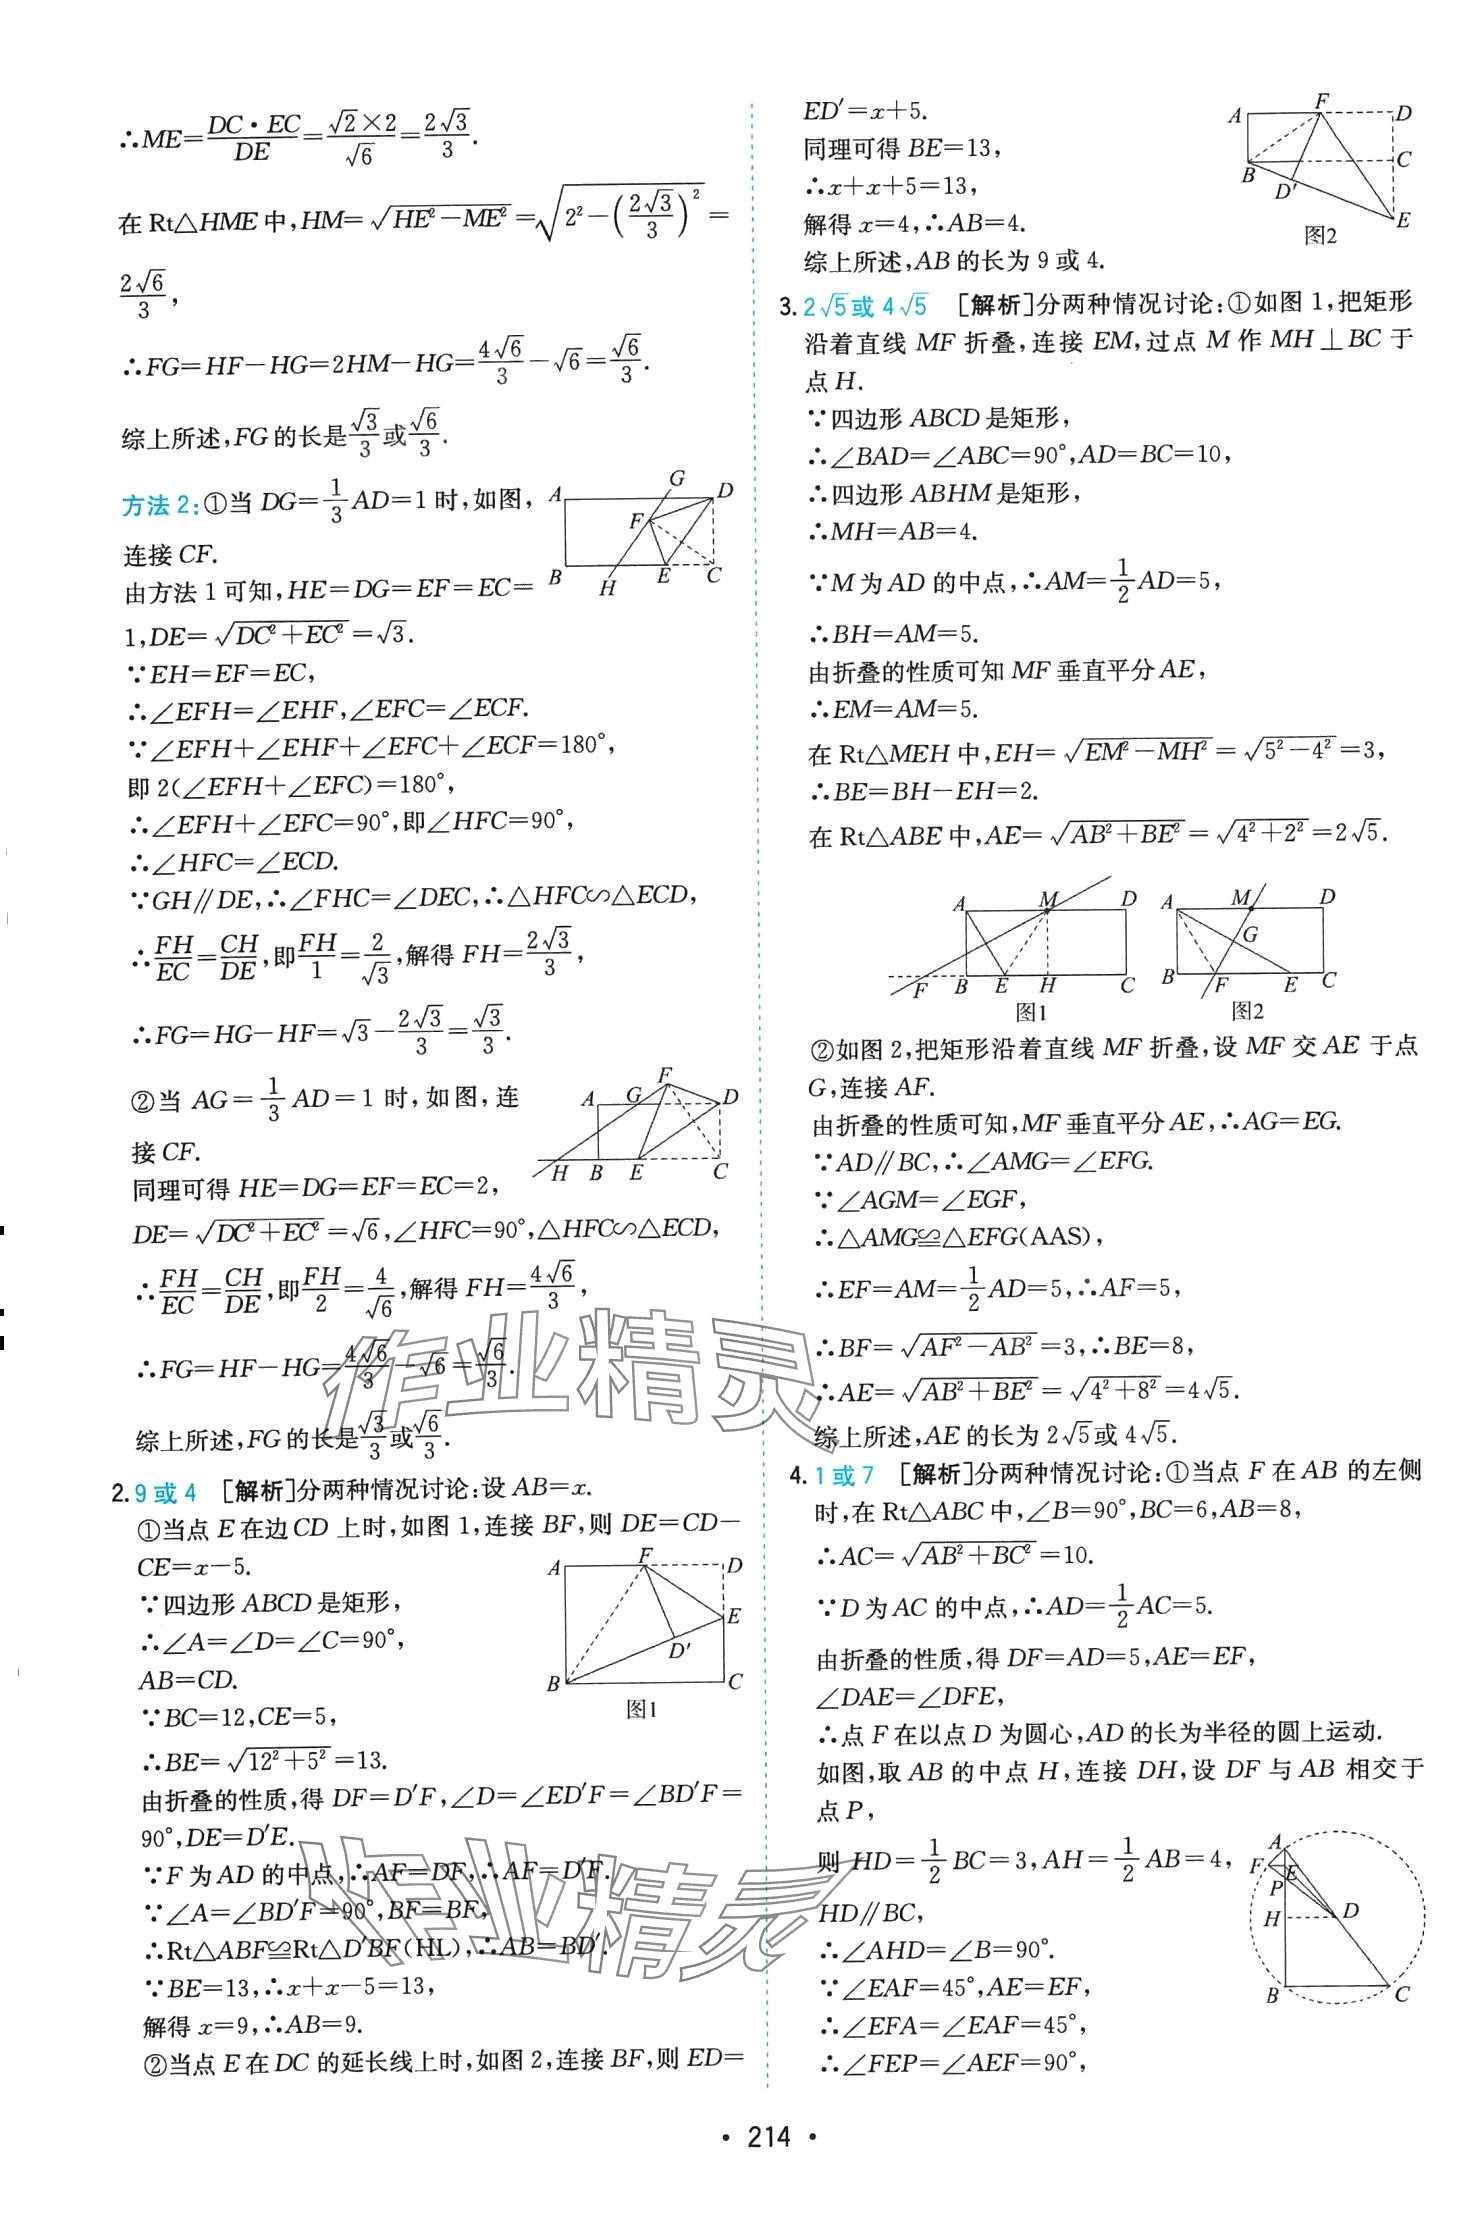 ∴ME=DC·EC/DE=√2×2/√6=2√3/3.
在 Rt△HME 中,HM=√(HE²-ME²)=√(2²-(2√3/3)²)=
2√6/3,
∴FG=HF-HG=2HM-HG=4√6/3-√6=√6/3.
综上所述,FG 的长是√3/3或√6/3.
方法 2:①当 DG=1/3 AD=1 时,如图,
连接 CF.
由方法 1 可知,HE=DG=EF=EC=
1,DE=√(DC²+EC²)=√3.
∵EH=EF=EC,
∴∠EFH=∠EHF,∠EFC=∠ECF.
∵∠EFH+∠EHF+∠EFC+∠ECF=180°,
即 2(∠EFH+∠EFC)=180°,
∴∠EFH+∠EFC=90°,即∠HFC=90°,
∴∠HFC=∠ECD.
∵GH∥DE,∴∠FHC=∠DEC,∴△HFC∽△ECD,
∴FH/EC=CH/DE,即FH/1=2/√3,解得 FH=2√3/3,
∴FG=HG-HF=√3-2√3/3=√3/3.
②当 AG=1/3 AD=1 时,如图,连
接 CF.
同理可得 HE=DG=EF=EC=2,
DE=√(DC²+EC²)=√6,∠HFC=90°,△HFC∽△ECD,
∴FH/EC=CH/DE,即FH/2=4/√6,解得 FH=4√6/3,
∴FG=HF-HG=4√6/3-√6=√6/3.
综上所述,FG 的长是√3/3或√6/3.
A G D F B H E C
A G F D H B E C
2. 9 或 4 [解析]分两种情况讨论:设 AB=x.
①当点 E 在边 CD 上时,如图 1,连接 BF,则 DE=CD-
CE=x-5.
∵四边形 ABCD 是矩形,
∴∠A=∠D=∠C=90°,
AB=CD.
∵BC=12,CE=5,
∴BE=√(12²+5²)=13.
由折叠的性质,得 DF=D′F,∠D=∠ED′F=∠BD′F=
90°,DE=D′E.
∵F 为 AD 的中点,∴AF=DF,∴AF=D′F.
∵∠A=∠BD′F=90°,BF=BF,
∴Rt△ABF≌Rt△D′BF(HL),∴AB=BD′.
∵BE=13,∴x+x-5=13,
解得 x=9,∴AB=9.
②当点 E 在 DC 的延长线上时,如图 2,连接 BF,则 ED=
A F D E D′ B C
图1
ED′=x+5.
同理可得 BE=13,
∴x+x+5=13,
解得 x=4,∴AB=4.
综上所述,AB 的长为 9 或 4.
A F D B C D′ E
图2
3. 2√5或 4√5 [解析]分两种情况讨论:①如图 1,把矩形
沿着直线 MF 折叠,连接 EM,过点 M 作 MH⊥BC 于
点 H.
∵四边形 ABCD 是矩形,
∴∠BAD=∠ABC=90°,AD=BC=10,
∴四边形 ABHM 是矩形,
∴MH=AB=4.
∵M 为 AD 的中点,∴AM=1/2 AD=5,
∴BH=AM=5.
由折叠的性质可知 MF 垂直平分 AE,
∴EM=AM=5.
在 Rt△MEH 中,EH=√(EM²-MH²)=√(5²-4²)=3,
∴BE=BH-EH=2.
在 Rt△ABE 中,AE=√(AB²+BE²)=√(4²+2²)=2√5.
A M D F B E H C
图1
A M D G B F E C
图2
②如图 2,把矩形沿着直线 MF 折叠,设 MF 交 AE 于点
G,连接 AF.
由折叠的性质可知,MF 垂直平分 AE,∴AG=EG.
∵AD∥BC,∴∠AMG=∠EFG.
∵∠AGM=∠EGF,
∴△AMG≌△EFG(AAS),
∴EF=AM=1/2 AD=5,∴AF=5,
∴BF=√(AF²-AB²)=3,∴BE=8,
∴AE=√(AB²+BE²)=√(4²+8²)=4√5.
综上所述,AE 的长为 2√5或 4√5.
4. 1 或 7 [解析]分两种情况讨论:①当点 F 在 AB 的左侧
时,在 Rt△ABC 中,∠B=90°,BC=6,AB=8,
∴AC=√(AB²+BC²)=10.
∵D 为 AC 的中点,∴AD=1/2 AC=5.
由折叠的性质,得 DF=AD=5,AE=EF,
∠DAE=∠DFE,
∴点 F 在以点 D 为圆心,AD 的长为半径的圆上运动.
如图,取 AB 的中点 H,连接 DH,设 DF 与 AB 相交于
点 P,
则 HD=1/2 BC=3,AH=1/2 AB=4,
HD∥BC,
∴∠AHD=∠B=90°.
∵∠EAF=45°,AE=EF,
∴∠EFA=∠EAF=45°,
∴∠FEP=∠AEF=90°,
A F E P H D B C
作业精灵
作业精灵
·214·